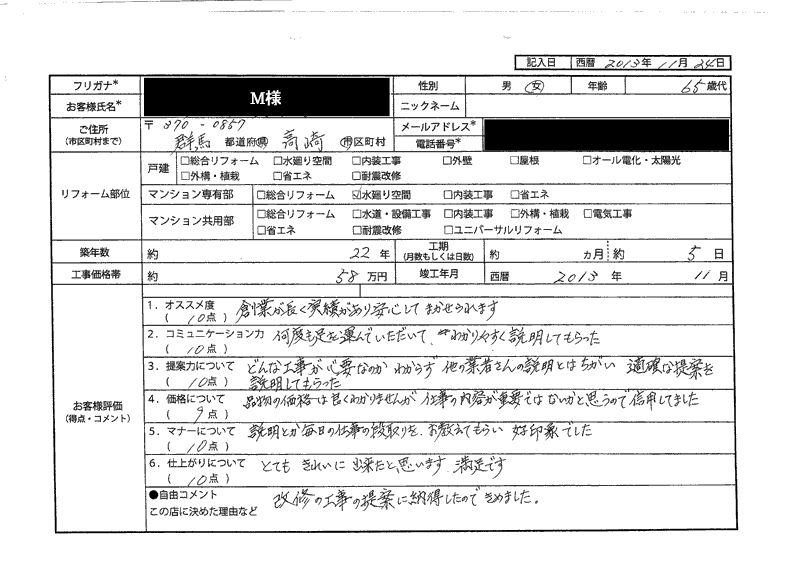 記入日 西暦 2013年 11月 24日
フリガナ* 性別 男 女 年齢 65歳代
お客様氏名* M様 ニックネーム
ご住所 〒370-0857 メールアドレス*
(市区町村まで) 群馬 都道府県 高崎 市区町村 電話番号*
リフォーム部位
戸建 □総合リフォーム □水廻り空間 □内装工事 □外壁 □屋根 □オール電化・太陽光
□外構・植栽 □省エネ □耐震改修
マンション専有部 □総合リフォーム ☑水廻り空間 □内装工事 □省エネ
マンション共用部 □総合リフォーム □水道・設備工事 □内装工事 □外構・植栽 □電気工事
□省エネ □耐震改修 □ユニバーサルリフォーム
築年数 約 22年 工期 (月数もしくは日数) 約 ヵ月 約 5日
工事価格帯 約 58万円 竣工年月 西暦 2013年 11月
お客様評価
(得点・コメント)
1. オススメ度 創業が長く実績があり安心してまかせられます
(10点)
2. コミュニケーション力 何度も足を運んでいただいて、わかりやすく説明してもらった
(10点)
3. 提案力について どんな工事が必要なのか わからず 他の業者さんの説明とはちがい 適確な提案を
(10点) 説明してもらった
4. 価格について 品物の価格は良くわかりませんが 仕事の内容が重要ではないかと思うので信用してました
(9点)
5. マナーについて 説明とか毎日の仕事の段取りを、お教えてもらい 好印象でした
(10点)
6. 仕上がりについて とても きれいに 出来たと思います 満足です
(10点)
●自由コメント 改修の工事の提案に納得したのできめました。
この店に決めた理由など